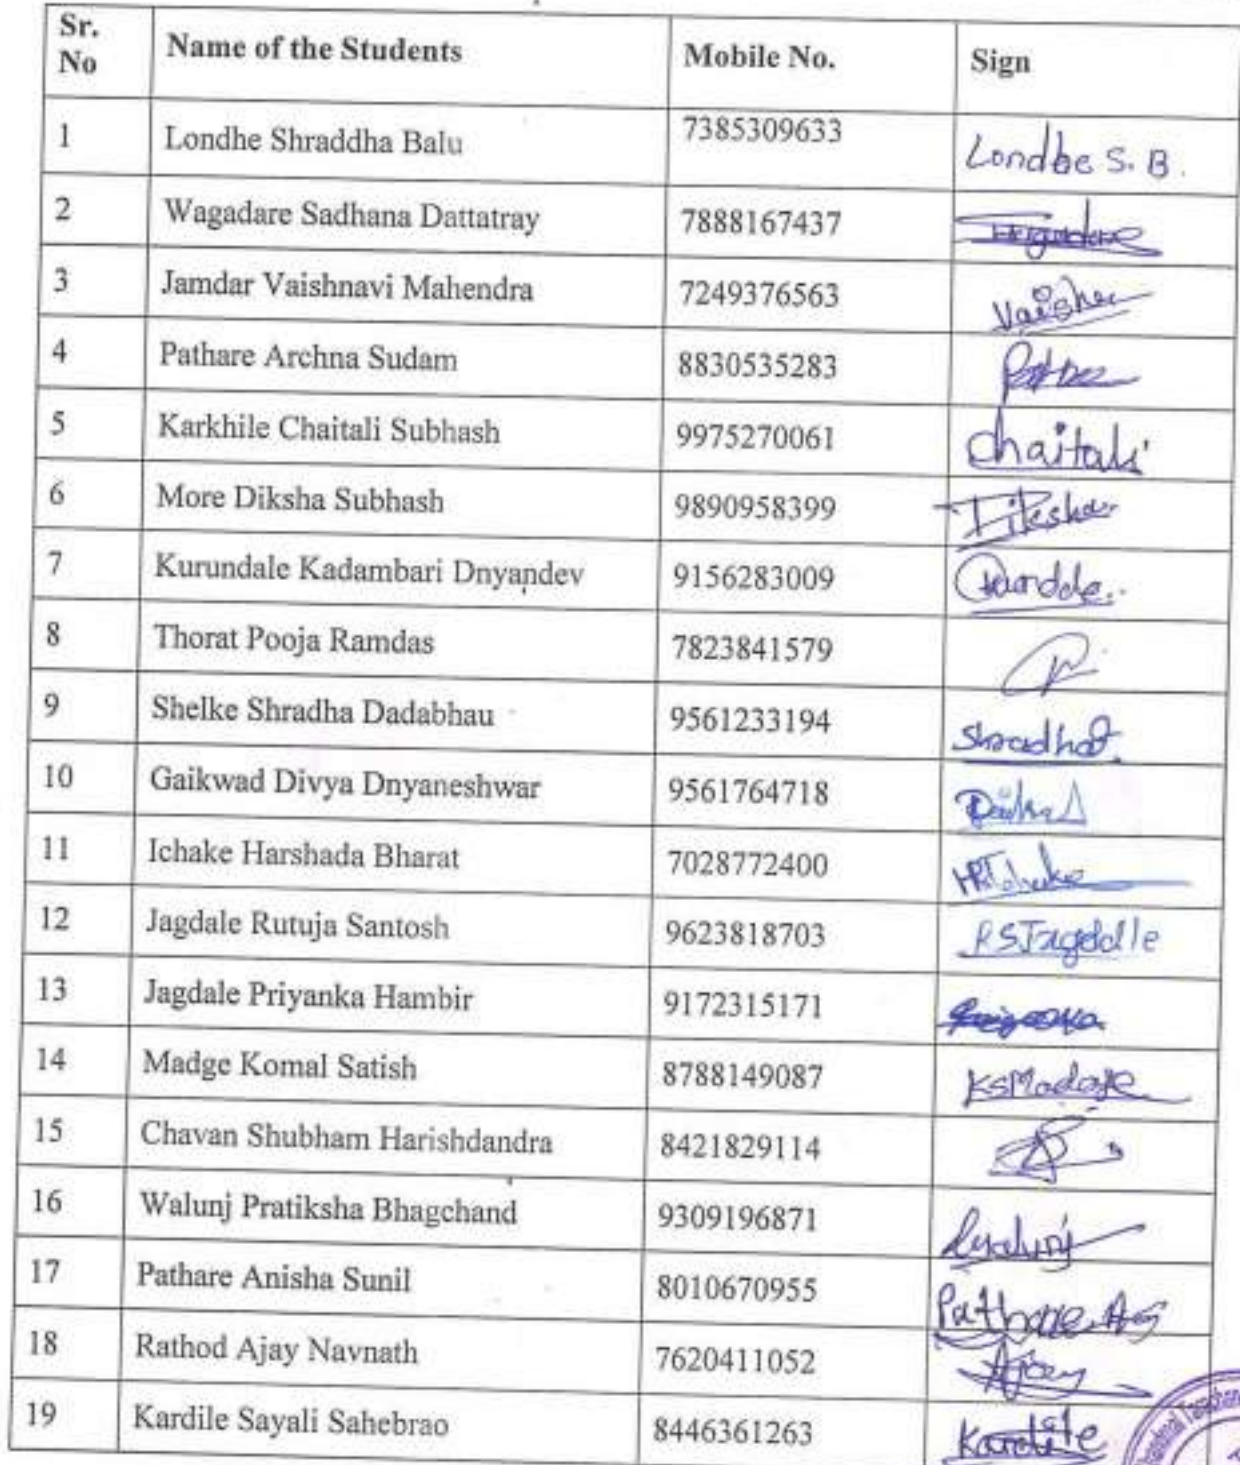 Sr. No Name of the Students Mobile No. Sign
1 Londhe Shraddha Balu 7385309633 Londhe S. B.
2 Wagadare Sadhana Dattatray 7888167437
3 Jamdar Vaishnavi Mahendra 7249376563
4 Pathare Archna Sudam 8830535283
5 Karkhile Chaitali Subhash 9975270061 Chaitali
6 More Diksha Subhash 9890958399
7 Kurundale Kadambari Dnyandev 9156283009
8 Thorat Pooja Ramdas 7823841579
9 Shelke Shradha Dadabhau 9561233194
10 Gaikwad Divya Dnyaneshwar 9561764718
11 Ichake Harshada Bharat 7028772400
12 Jagdale Rutuja Santosh 9623818703
13 Jagdale Priyanka Hambir 9172315171
14 Madge Komal Satish 8788149087
15 Chavan Shubham Harishdandra 8421829114
16 Walunj Pratiksha Bhagchand 9309196871
17 Pathare Anisha Sunil 8010670955 Pathare
18 Rathod Ajay Navnath 7620411052 Ajay
19 Kardile Sayali Sahebrao 8446361263 Kardile